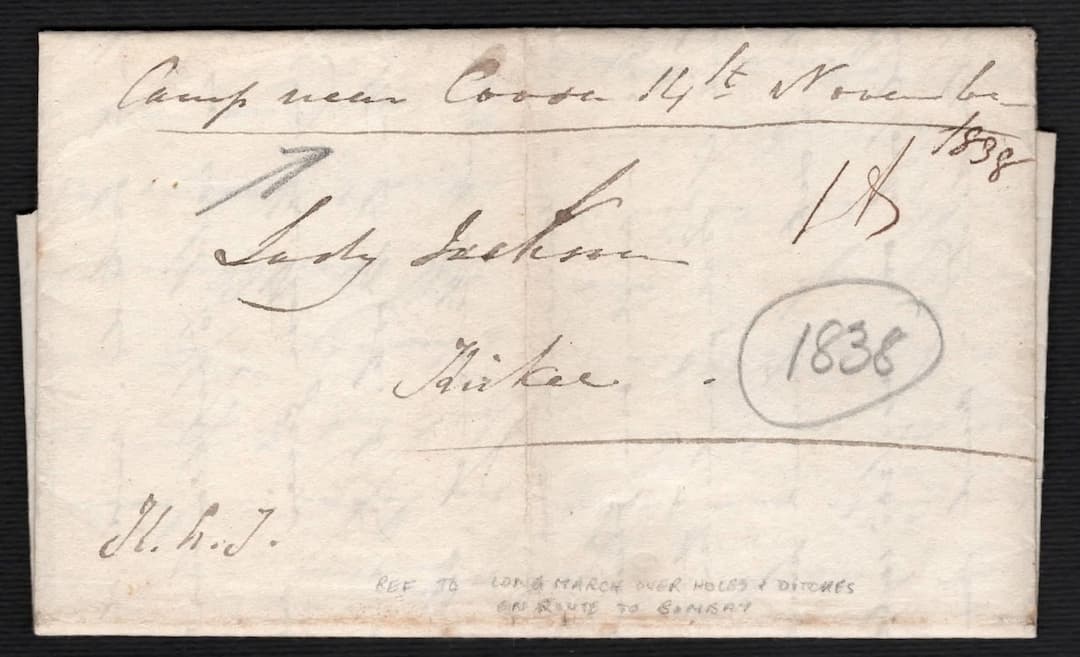 Camp near 14th November
1838
Lady Jackson
Kirkee
1838
REF TO LONG MARCH OVER HOLES & DITCHES
EN ROUTE TO BOMBAY